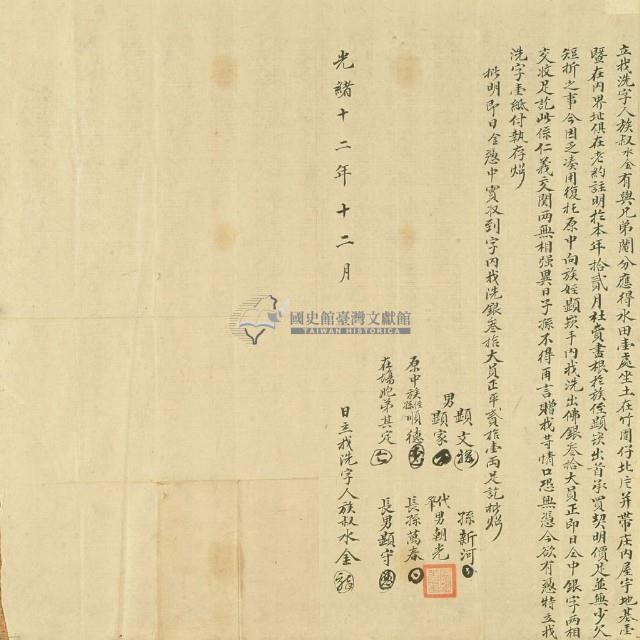 立找洗字人族叔水金有與兄弟鬮分應得水田壹處坐土在竹圍仔北片并帶庄內屋宇地基壹
暨在內界址俱在老約註明於本年拾貳月杜賣盡根於族侄顯崁出首承買契明價足並無少欠
短折之事今因乏凑用復托原中向族姪顯崁手內找洗出佛銀叁拾大員正即日仝中銀字兩相
交收足訖此係仁義交關兩無相强異日子孫不得再言贈找等情口恐無憑今欲有憑特立找
洗字壹紙付執存炤
批明即日仝憑中實收到字內找洗銀叁拾大員正平貳拾壹兩足訖批炤
男 顯文 孫新河
顯家 代筆男朝光
原中族侄 順德 長孫萬春
在塲胞弟其定 長男顯守
光緒十二年十二月 日立找洗字人族叔水金
國史館臺灣文獻館
TAIWAN HISTORICA